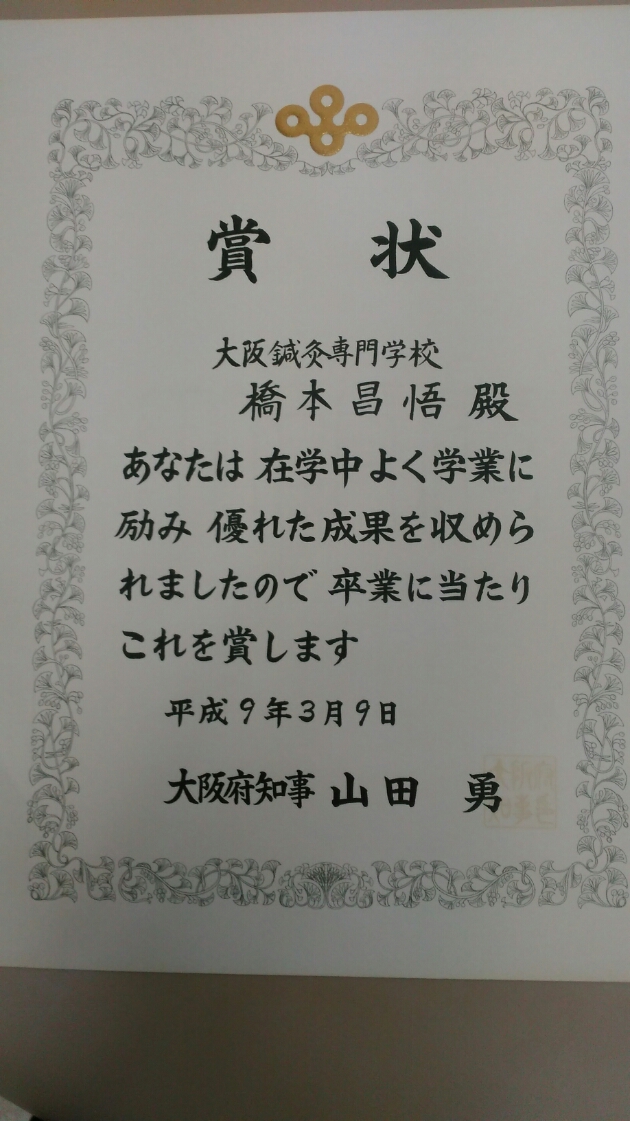 賞状
大阪鍼灸専門学校
橋本昌悟殿
あなたは 在学中よく学業に
励み 優れた成果を収めら
れましたので 卒業に当たり
これを賞します
平成9年3月9日
大阪府知事 山田 勇